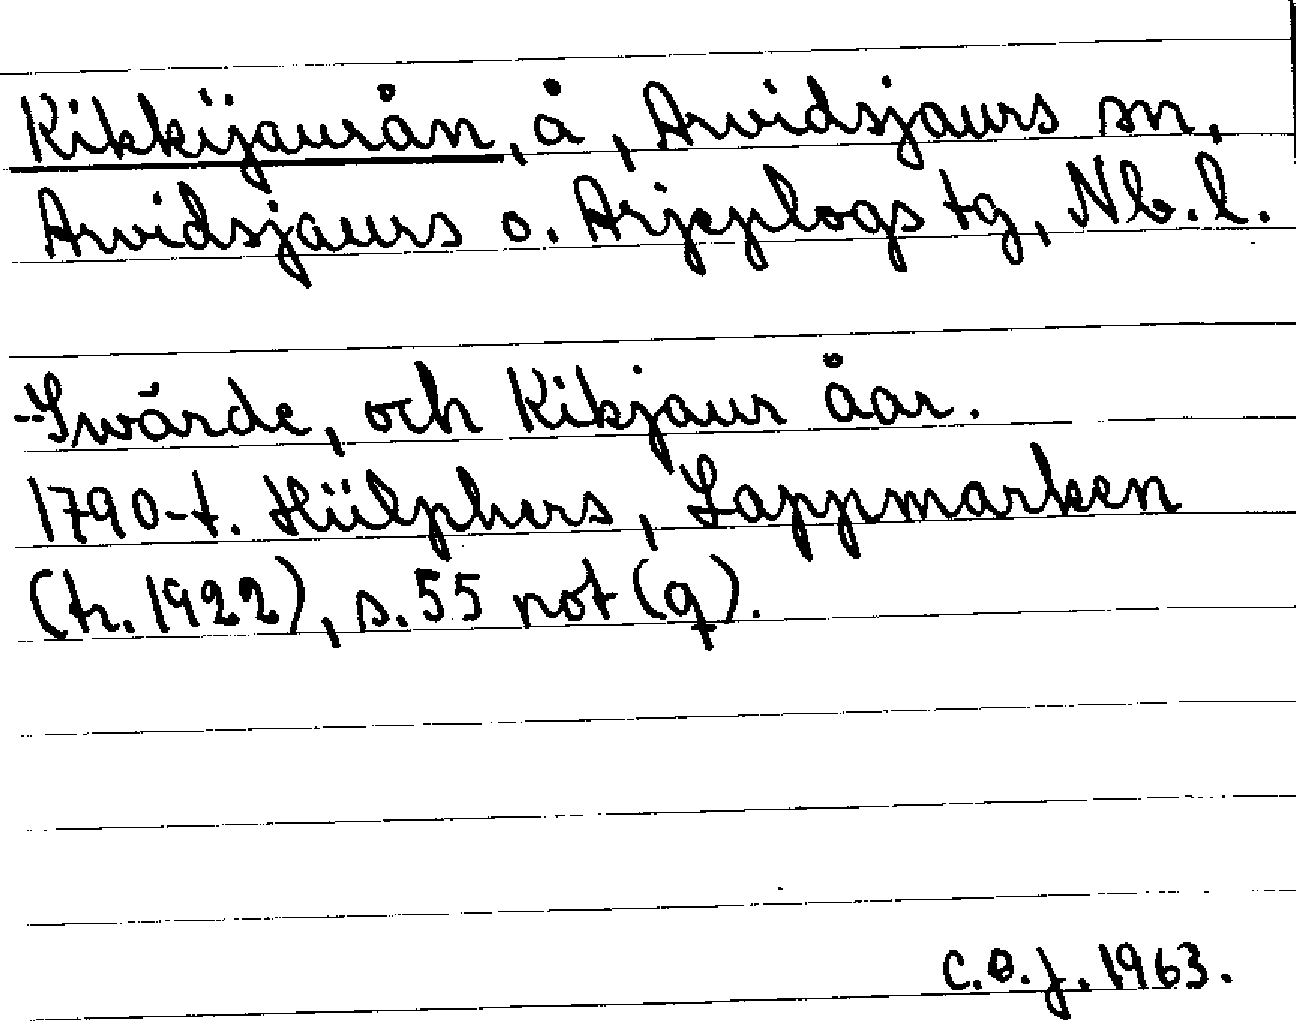 Kikkijaurån, å, Arvidsjaurs sn,
Arvidsjaurs o. Arjeplogs tg, Nb.l.
--Swärde, och Kikjaur åar.
1790-t. Hülphers, Lappmarken
(tr. 1922), s. 55 not (q).
C.O.J. 1963.